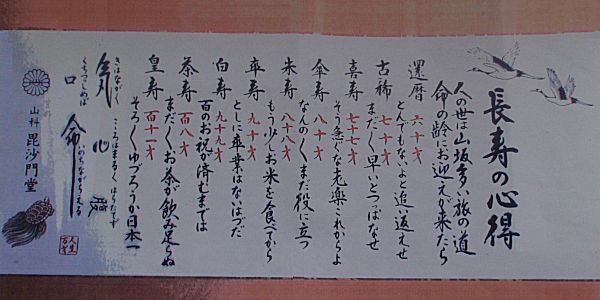 長寿の心得
人の世は山坂多い旅の道
命の齢にお迎えが来たら
還暦 六十才
とんでもないよと追い返えせ
古稀 七十才
まだ〱早いとつっぱなせ
喜寿 七十七才
そう急ぐな老楽これからよ
傘寿 八十才
なんの〱まだ役に立つ
米寿 八十八才
もう少しお米を食べてから
卒寿 九十才
としに卒業はないはずだ
白寿 九十九才
百のお祝が済むまでは
茶寿 百八才
まだ〱お茶が飲み足らぬ
皇寿 百十一才
そろ〱ゆづろうか日本一
きはながく こころはまるく はらたてず
気 心 腹
くちつつしめば いのちながらえる
口 命
山科 毘沙門堂